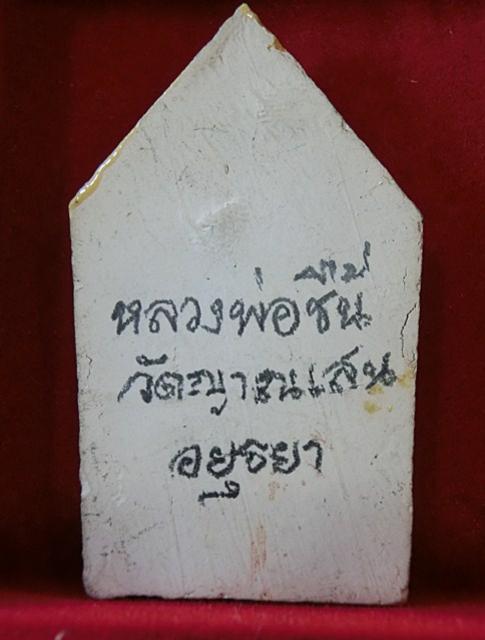 หลวงพ่อชื้น
วัดญาณเสน
อยุธยา